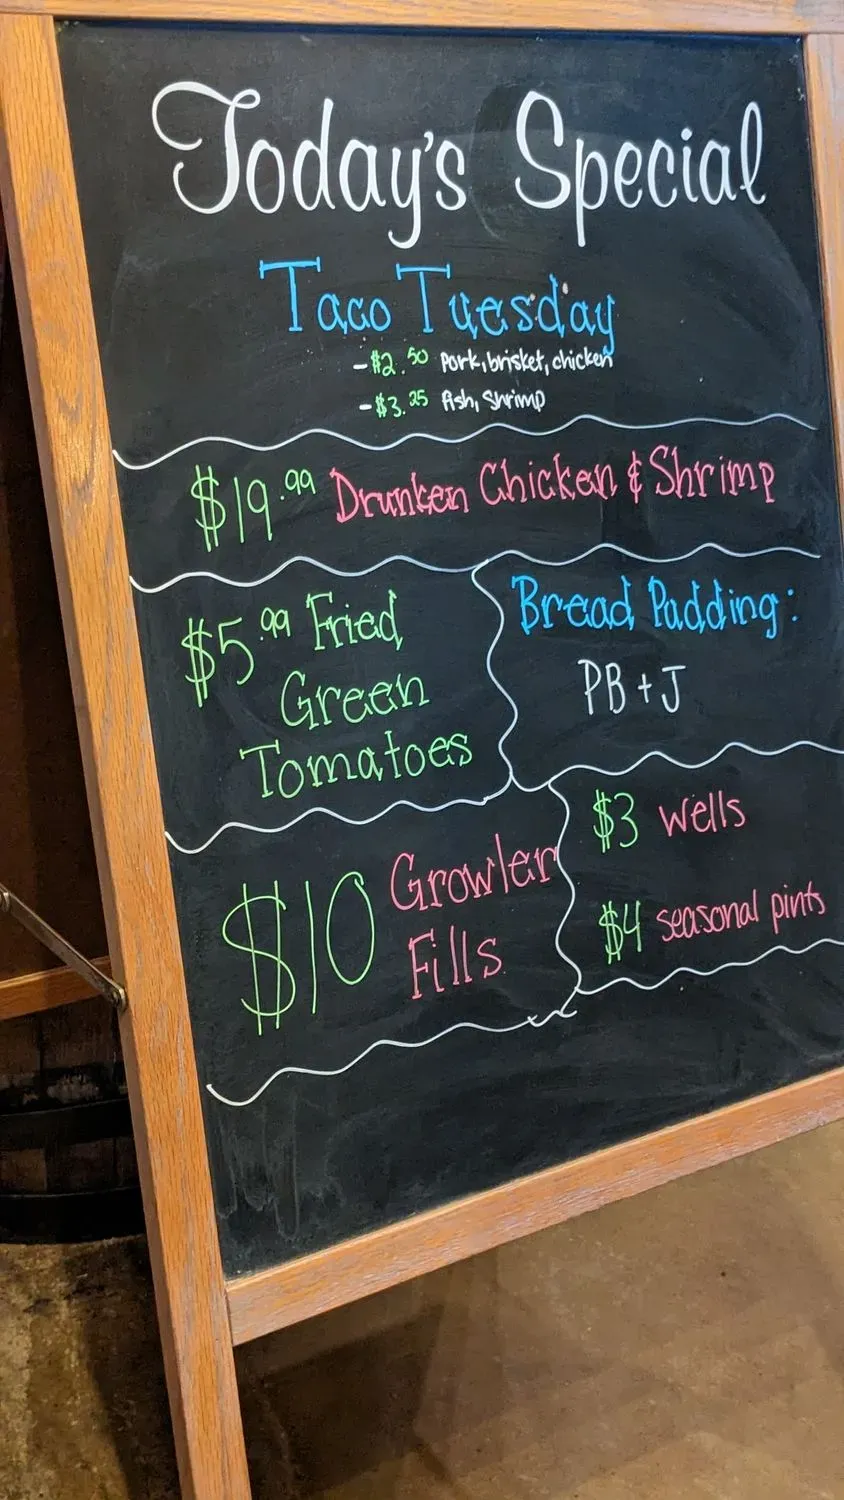 Today's Special
Taco Tuesday
-$2.50 Pork, brisket, chicken
-$3.25 fish, shrimp
$19.99 Drunken Chicken & Shrimp
$5.99 Fried
Green
Tomatoes
Bread Pudding:
PB + J
$10 Growler
Fills
$3 wells
$4 seasonal pints